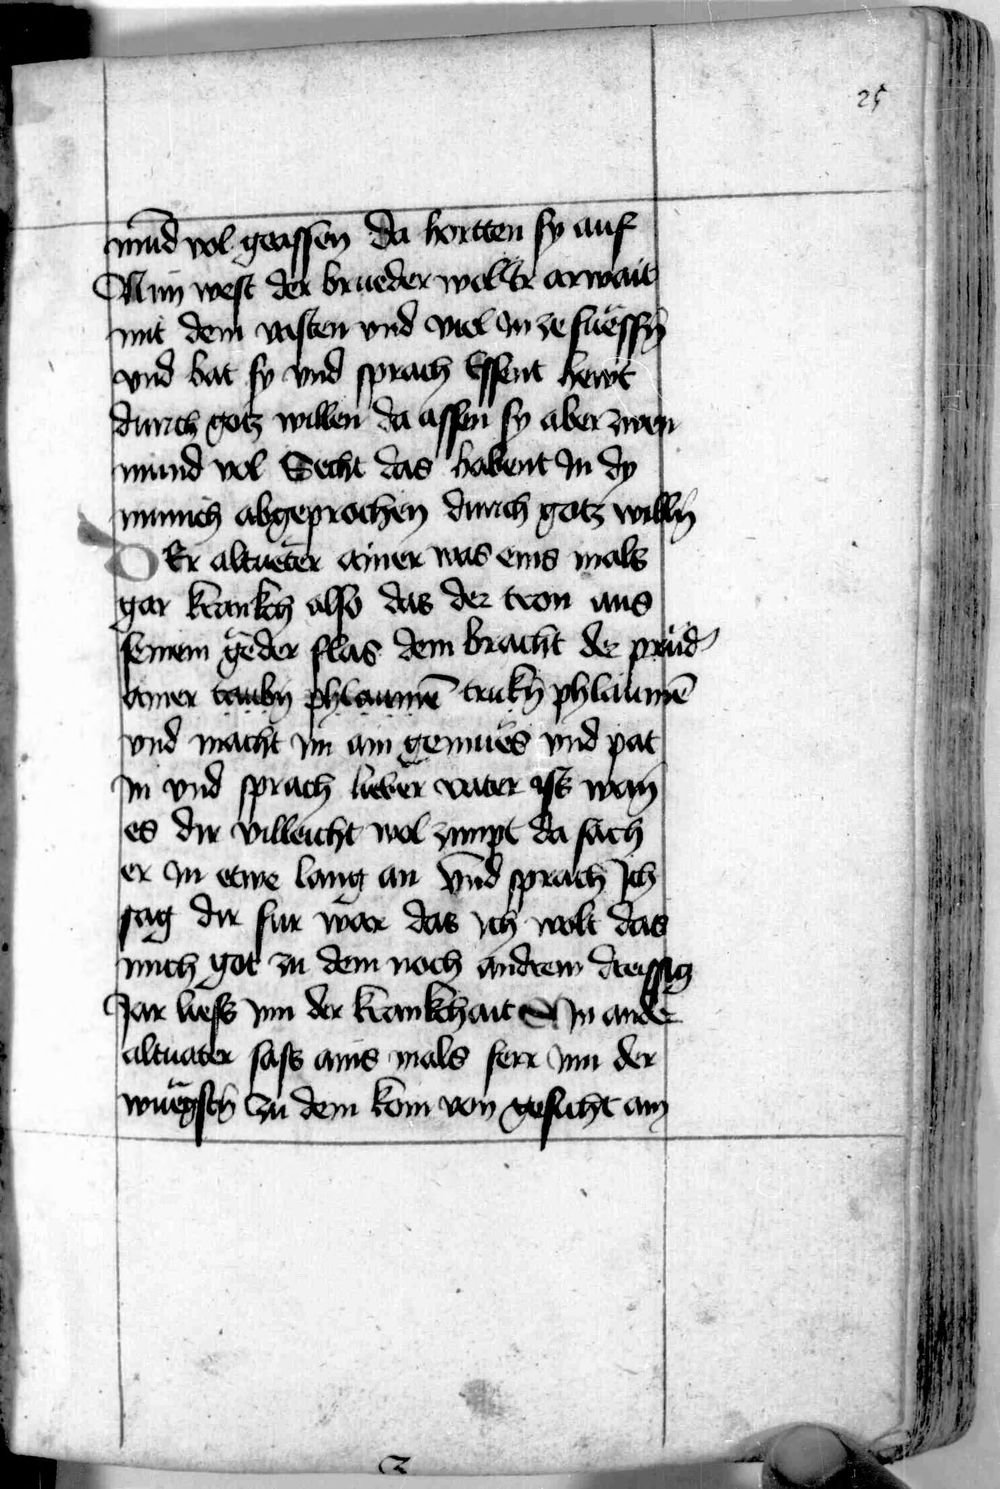 25
mūd vol geassen Da hortten sy auf
Nun west der brueder wol Ir arwait
mit dem vasten vnd viel In ze fuëssen̄
vnd bat sy vnd sprach Essent hewt
durch gotz willen da assen sy aber zwen
mund vol Secht das habent In dy
munich abgeprochen durch gotz willn̄
DEr altueter ainer was eins mals
gar krankch also das der tron aus
seinem geder flas dem bracht der prüd
ainer taubn phlaumē trukn̄ phlaumē
vnd macht im ain gemues vnd pat
In vnd sprach lieber vater iss wan̄
es dir villeicht wol zimpt da sach
er In etwe lang an Vnd sprach Ich
sag dir fur war das ich wolt das
mich got zu dem noch andrew dreissig
Jar liess inn der krankchait Ain ander
altuater sass ains mals ferr inn der
wuegsth Zu dem kom von gesicht ain